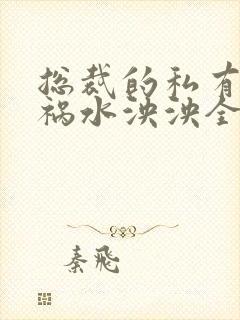 总裁的私有
祸水泱泱全
秦飛